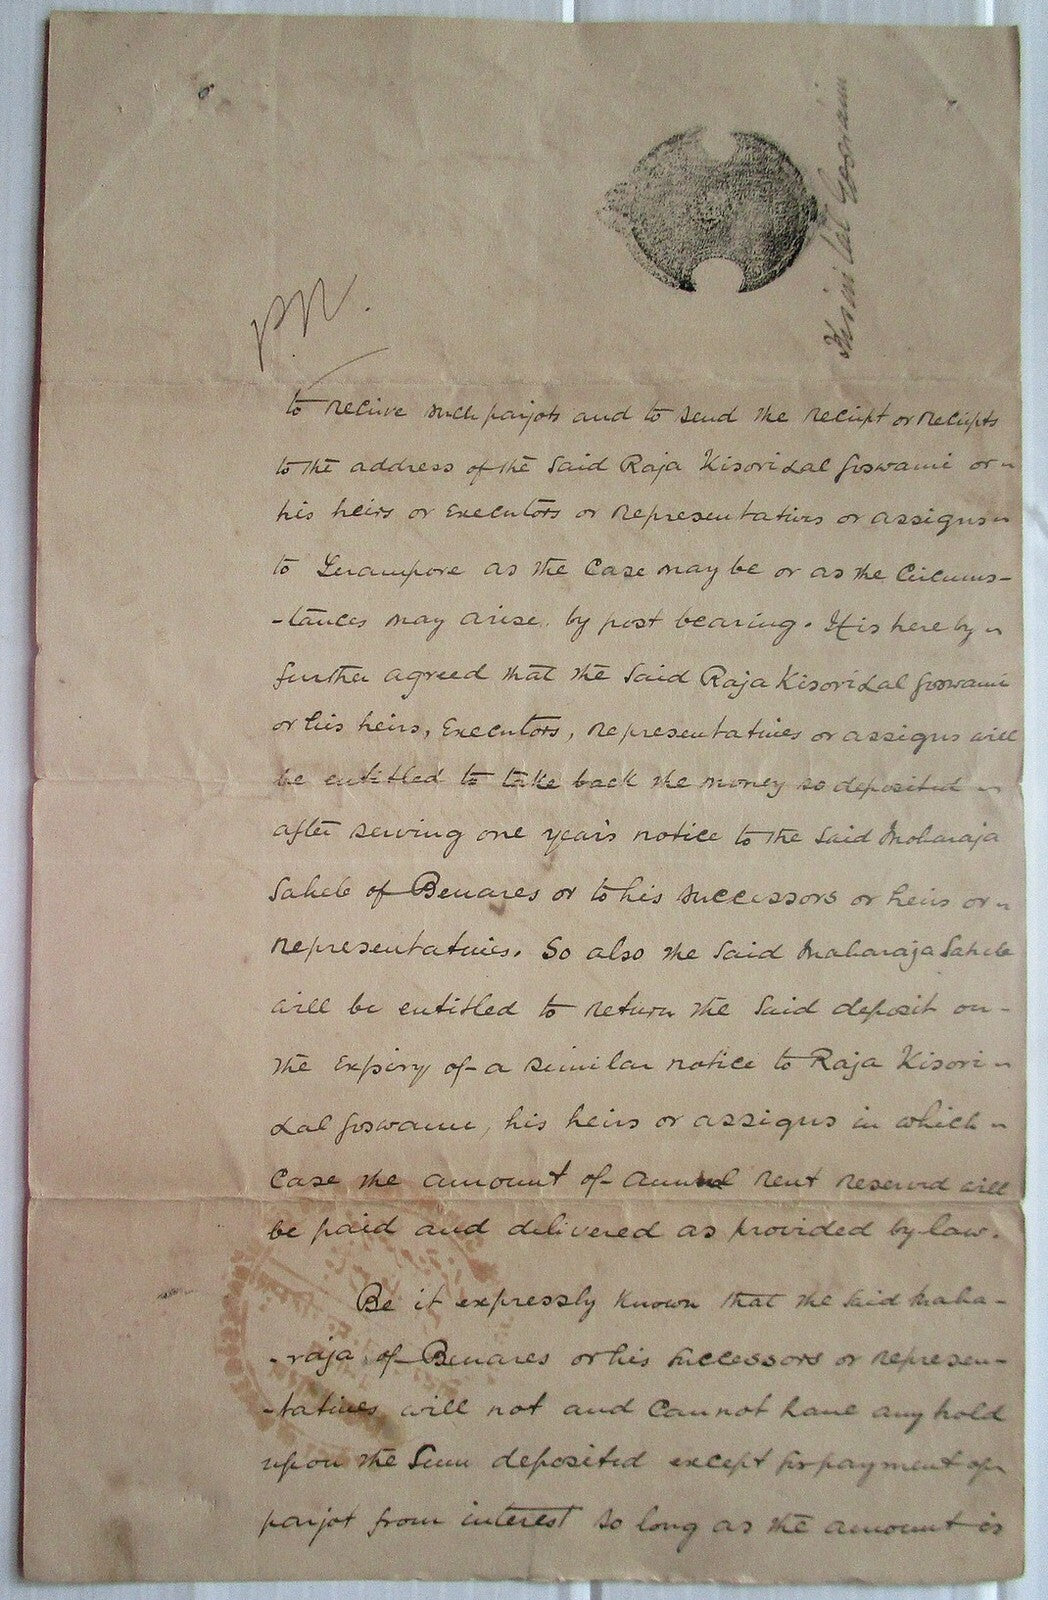 Kisori Lal Goswami
P.N.
to receive such parjots and to send the receipt or receipts
to the address of the said Raja Kisori Lal Goswami or
his heirs or Executors or representatives or assigns
to Serampore as the case may be or as the Circums-
-tances may arise, by post bearing. It is here by
further agreed that the said Raja Kisori Lal Goswami
or his heirs, Executors, representatives or assigns will
be entitled to take back the money so deposited
after serving one year's notice to the said Maharaja
Saheb of Benares or to his successors or heirs or
representatives. So also the said Maharaja Saheb
will be entitled to return the said deposit on
the expiry of a similar notice to Raja Kisori
Lal Goswami, his heirs or assigns in which
case the amount of annual rent reserved will
be paid and delivered as provided by law.
Be it expressly known that the said Maha-
-raja of Benares or his successors or represen-
-tatives will not and cannot have any hold
upon the Sum deposited except for payment of
parjot from interest so long as the amount is